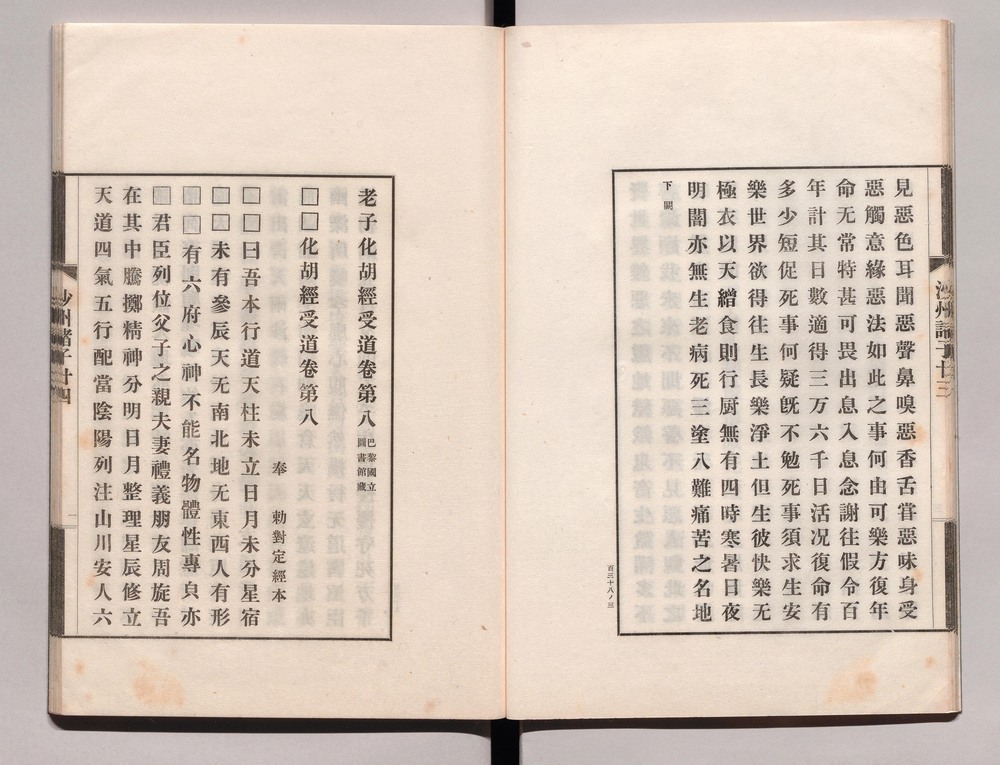 見惡色耳聞惡聲鼻嗅惡香舌甞惡味身受
惡觸意緣惡法如此之事何由可樂方復年
命无常特甚可畏出息入息念謝往假令百
年計其日數適得三万六千日活况復命有
多少短促死事何疑旣不勉死事須求生安
樂世界欲得往生長樂淨土但生彼快樂无
極衣以天繒食則行厨無有四時寒暑日夜
明闇亦無生老病死三塗八難痛苦之名地
下闕
百三十八ノ三
老子化胡經受道卷第八 巴黎國立圖書館藏
□□化胡經受道卷第八
奉 勅對定經本
□□曰吾本行道天柱未立日月未分星宿
□□未有參辰天无南北地无東西人有形
□□有六府心神不能名物體性專貞亦
□君臣列位父子之親夫妻禮義朋友周旋吾
在其中騰擲精神分明日月整理星辰修立
天道四氣五行配當陰陽列注山川安人六